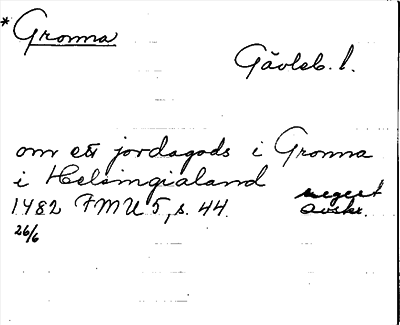 * Gronna
Gävleb. l.
om ett jordagods i Gronna
i Helsingialand
1482 FMU 5, s. 44. regest
avskr.
26/6